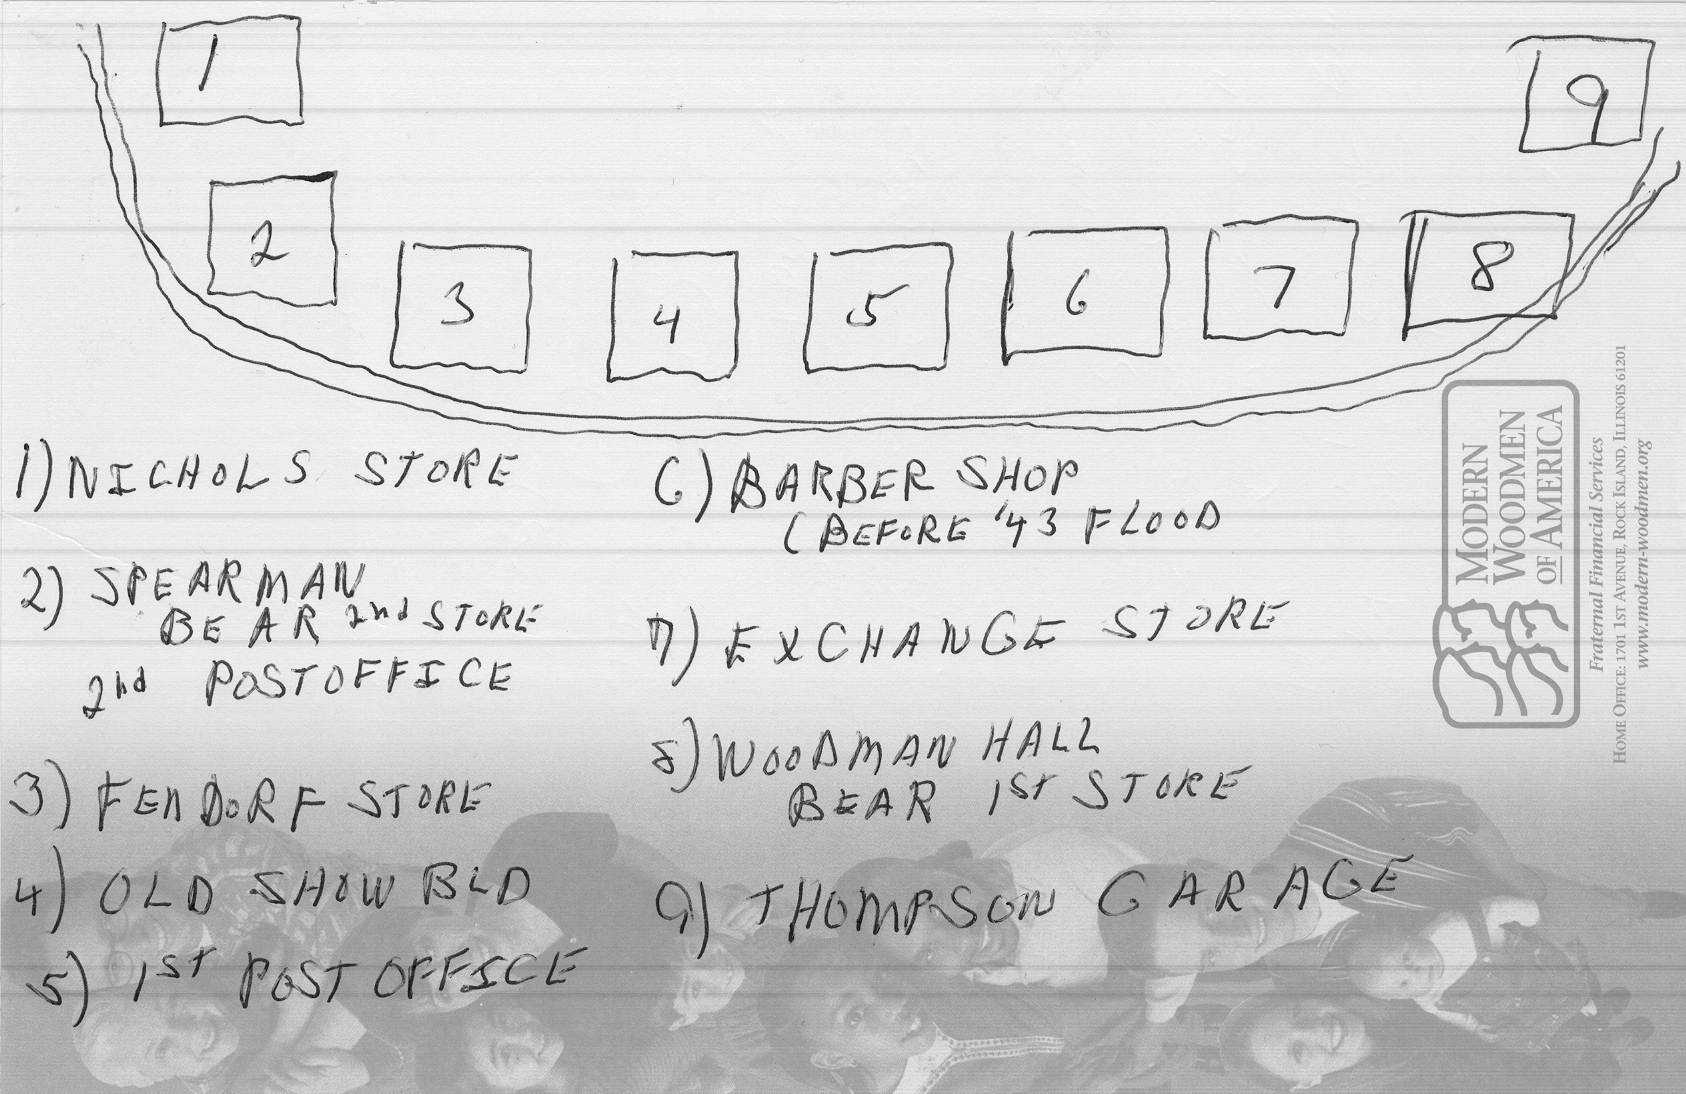 1
2
3
4
5
6
7
8
9
1) NICHOLS STORE
2) SPEARMAN
BEAR 2nd STORE
2nd POSTOFFICE
3) FENDORF STORE
4) OLD SHOW BLD
5) 1st POST OFFICE
6) BARBER SHOP
(BEFORE '43 FLOOD
7) EXCHANGE STORE
8) WOODMAN HALL
BEAR 1st STORE
9) THOMPSON GARAGE
MODERN
WOODMEN
OF AMERICA
Fraternal Financial Services
HOME OFFICE: 1701 1ST AVENUE, ROCK ISLAND, ILLINOIS 61201
www.modern-woodmen.org